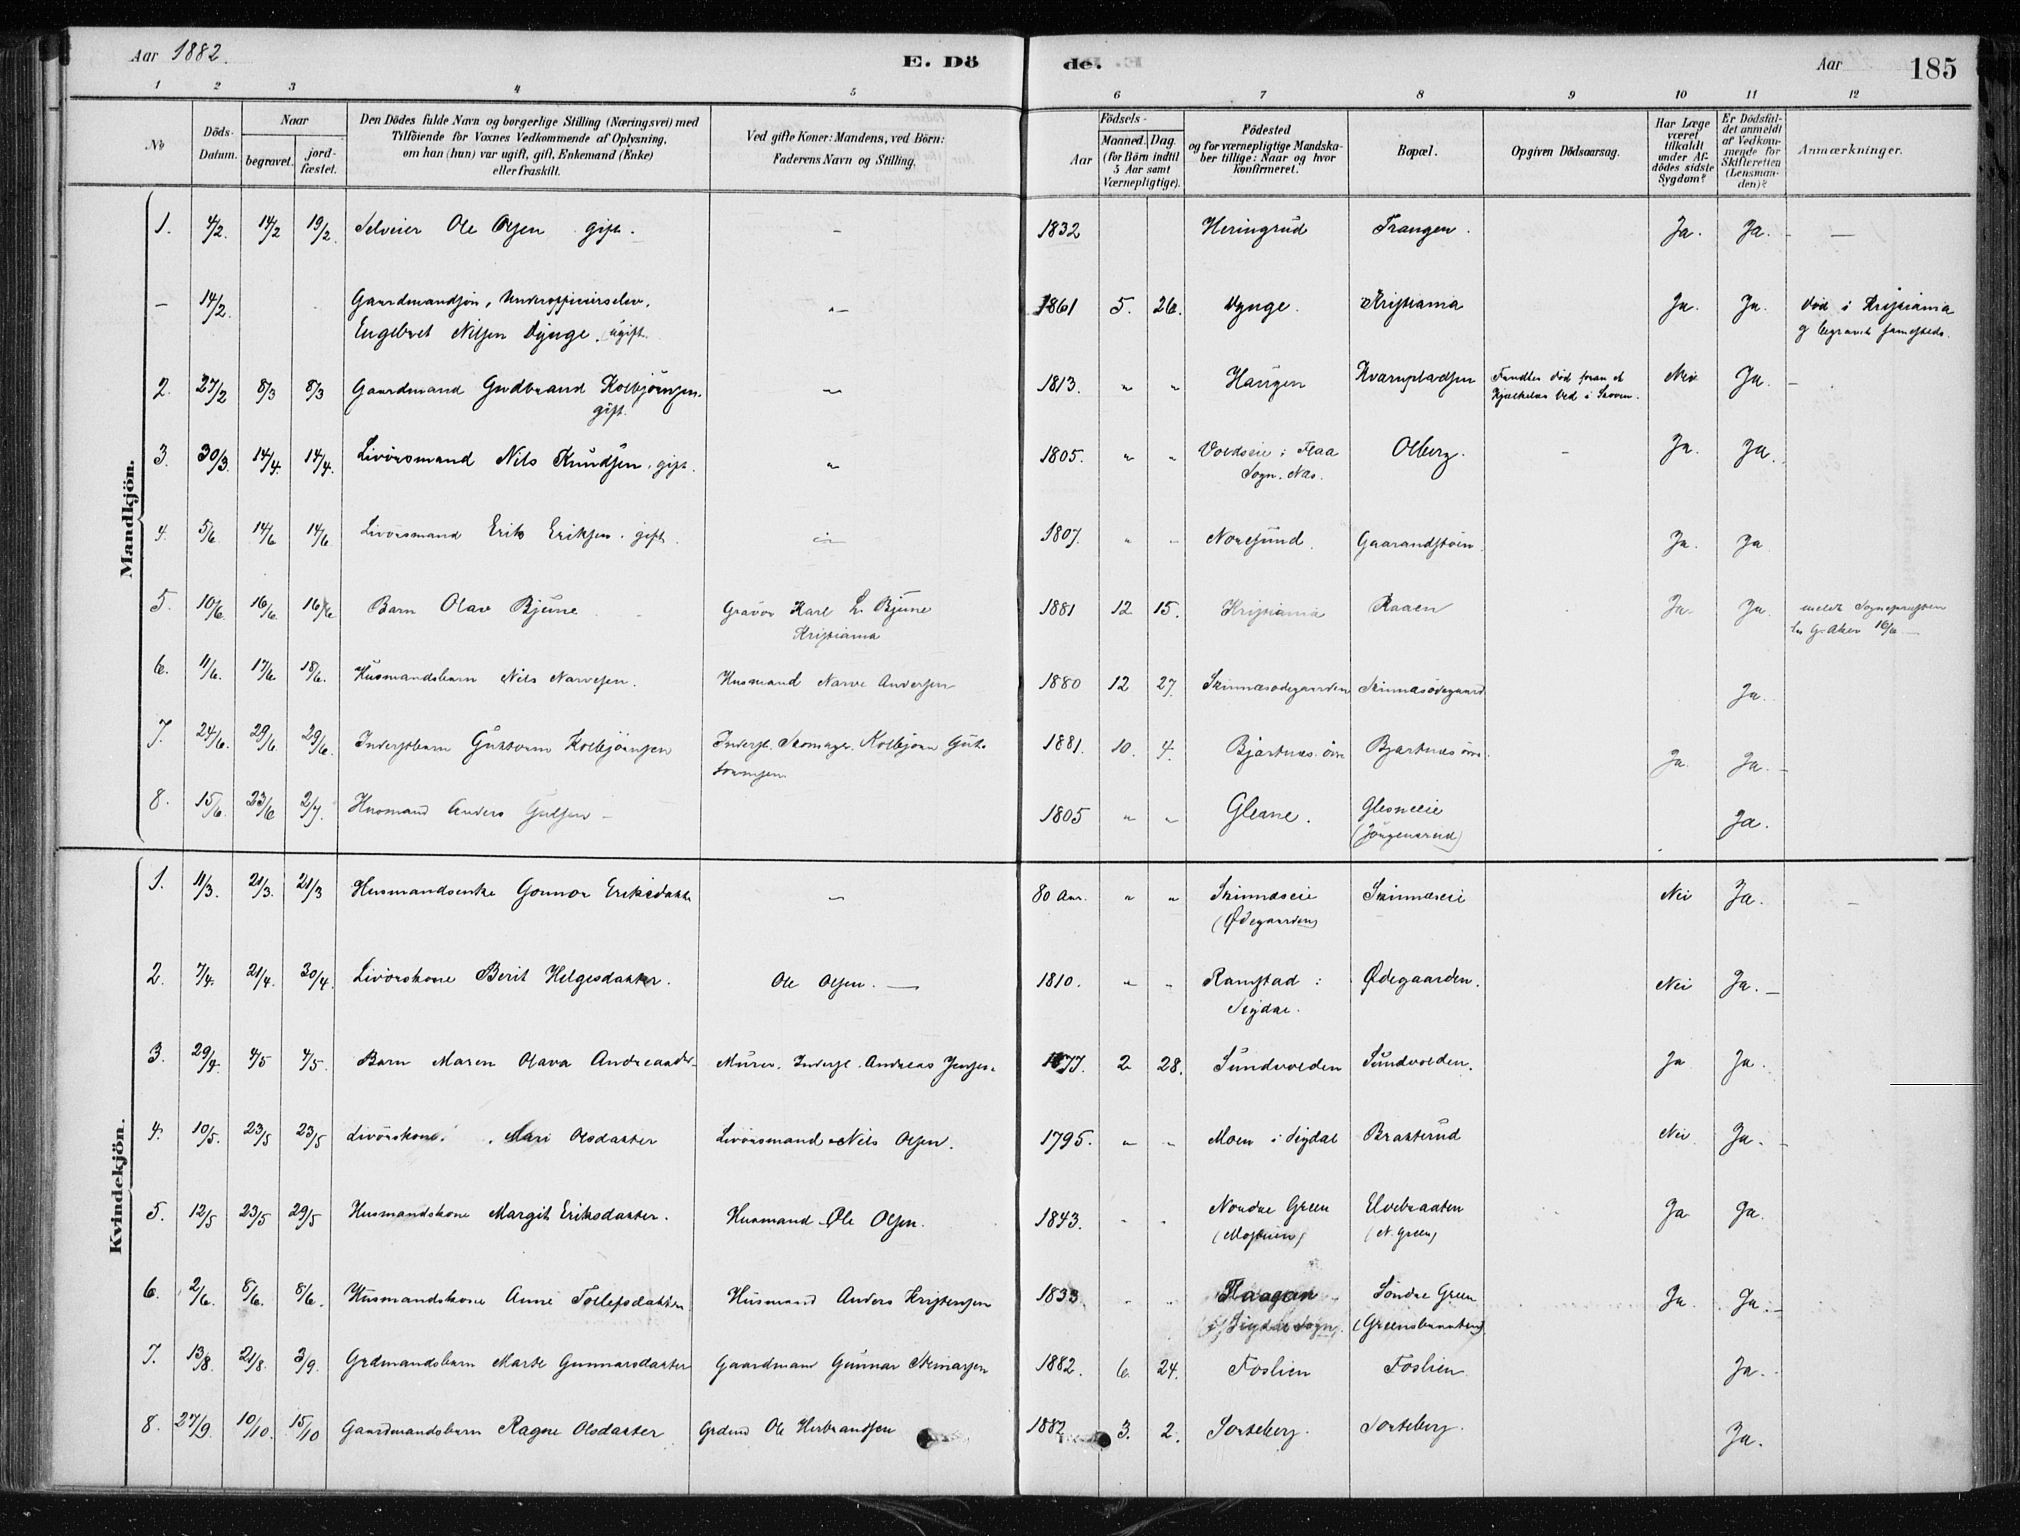 Aar 1882.
E. Dö
de.
Aar
185
1 2 3 4 5 6 7 8 9 10 11 12
No
Döds-Datum.
Naar
begravet.
jord-fæstet.
Den Dödes fulde Navn og borgerlige Stilling (Næringsvei) med
Tilföiende for Voxnes Vedkommende af Oplysning,
om han (hun) var ugift, gift, Enkemand (Enke)
eller fraskilt.
Ved gifte Koner: Mandens, ved Börn:
Faderens Navn og Stilling.
Födsels-
Aar
Maaned. Dag.
(for Börn indtil
5 Aar samt
Værnepligtige).
Födested
og for værnepligtige Mandska-
ber tillige: Naar og hvor
konfirmeret.
Bopæl.
Opgiven Dödsaarsag.
Har Læge
været
tilkaldt
under Af-
dödes sidste
Sygdom?
Er Dödsfal-
det anmeldt
af Vedkom-
mende for
Skifteretten
(Lensman-
den)?
Anmærkninger.
Mandkjön.
1. 4/2. 14/2 19/2. Selveier Ole Olsen gift. — 1832 Heringrud Trangen. Ja. Ja. — —
— 14/2. Gaardmandsön, Underofficierselev, — 1861 5. 26. Dynge. Kristiania Ja. Ja. död i Kristiania
Engebret Nilsen Dynge. (ugift. og begravet samesteds.
2. 27/2 8/3 8/3 Gaardmand Gudbrand Kolbjörnsen. — 1813. " " Haugen Kvarnpladsen Fundten död foran et Nei Ja. —
gift. Kjælkelas Ved i Skoven.
3. 30/3. 14/4. 14/4. Livörsmand Nils Knudsen. gift. " 1805. " " Voldseie i Flaa Olberg. - Ja. Ja.
Sogn. Næs.
4. 5/6. 14/6 14/6. Livörsmand Erik Eriksen. gift. — 1807. " " Noresund. Gaarandstöen. Ja. Ja
5. 10/6. 16/6. 16/6 Barn Olav Bjune Gravör Karl L. Bjune 1881 12 15. Kristiania Raaen Ja. Ja. meldt Sognepresten
Kristiania 16/6 —
6. 11/6. 17/6. 18/6. Husmandsbarn Nils Narvesen. Husmand Narve Andersen 1880 12 27. Skinnæsödegaarden Skinnæsödegaard Ja.
7. 24/6. 29/6 29/6. Inderstbarn Gustavum Kolbjörnsen Inderst. Skomager. Kolbjörn Gus- 1881. 10. 4. Bjartnæs övre Bjartnæs övre Ja. Ja. —
tavusen.
8. 15/6. 23/6 2/7. Husmand Anders Gulsen — 1805 " " Glesne. Glesneeie Ja.
(Jörgensrud)
Kvindekjön.
1. 11/3. 21/3. 21/3 Husmandsenke Gonnor Eriksdatter — 80 Aar. " " Skinnæseie Skinnæseie Nei Ja. —
(Ødegaarden)
2. 7/4. 21/4. 30/4. Livörskone Berit Helgesdatter. Ole Olsen. — 1810. " " Ramstad i Ødegaarden. Nei Ja. —
Sigdal.
3. 29/4. 4/5 4/5. Barn Maren Olava Andreasdtr. Murer. Inderst. Andreas Jensen. 1877. 2 28. Sundvolden Sundvolden. Ja Ja.
4. 10/5. 23/5 23/5 Livörskone. Mari Olsdatter Livörsmand Nils Olsen. 1795. " " Moen i Sigdal Braaterud Nei Ja. —
5. 12/5 23/5 29/5 Husmandskone Margit Eriksdatter. Husmand Ole Olsen. 1843. " " Nordre Green Elvebraaten Ja Ja.
(Mostuen) (N. Green)
6. 2/6. 8/6. 8/6. Husmandskone Anne Tollefsdatter Husmand Anders Kristensen 1833. " " Haagan Söndre Green Ja. Ja. —
i Sigdal Sogn. (Greensbraaten)
7. 13/8. 21/8. 3/9. Grdmandsbarn Marte Gunnarsdatter Gaardmand Gunnar Steinarsen 1882. 6. 24. Foslien Foslien Ja.
8. 27/9. 10/10. 15/10 Gaardmandsbarn Ragne Olsdatter Grdmd Ole Herbrandsen 1882 3. 2. Sorteberg. Sorteberg. Ja.